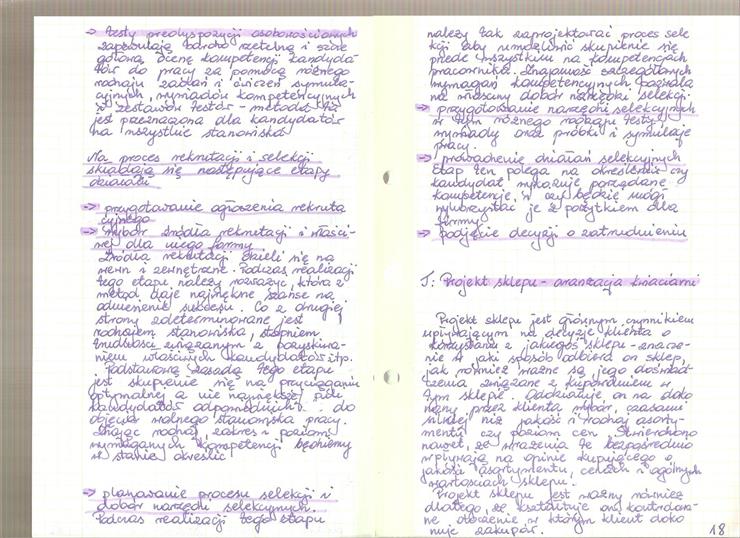 → testy predyspozycji osobowościowych
zapewniają bardzo rzetelną i szcze
gółową ocenę kompetencji kandyda
tów do pracy za pomocą różnego
rodzaju zadań i ćwiczeń symula-
cyjnych, wywiadów kompetencyjnych
i zestawów testów - metoda ta
jest przeznaczona dla kandydatów
na wszystkie stanowiska
Na proces rekrutacji i selekcji
składają się następujące etapy
działań:
→ przygotowanie ogłoszenia rekruta
cyjnego
→ wybór źródła rekrutacji i właści-
wej dla niego formy
Źródła rekrutacji dzieli się na
wewn i zewnętrzne. Podczas realizacji
tego etapu należy rozważyć, która z
metod daje największe szanse na
odniesienie sukcesu. Co z drugiej
strony zdeterminowane jest
rodzajem stanowiska, stopniem
trudności związanym z pozyskiwa-
niem właściwych kandydatów itp.
Podstawową zasadą tego etapu
jest skupienie się na przyciąganiu
optymalnej a nie największej puli
kandydatów odpowiednich do
objęcia wolnego stanowiska pracy.
Znając rodzaj, zakres i poziom
wymaganych kompetencji będziemy
w stanie określić
→ planowanie procesu selekcji i
dobór narzędzi selekcyjnych.
Podczas realizacji tego etapu
należy tak zaprojektować proces sele
kcji aby umożliwić skupienie się
przede wszystkim na kompetencjach
pracownika. Znajomość szczegółowych
wymagań kompetencyjnych pozwala
na właściwy dobór narzędzi selekcji.
→ przygotowanie narzędzi selekcyjnych
w tym różnego rodzaju testy,
wywiady oraz próbki i symulacje
pracy.
→ prowadzenie działań selekcyjnych
Etap ten polega na określeniu czy
kandydat wykazuje pożądane
kompetencje, i czy będzie mógł
wykorzystać je z pożytkiem dla
firmy.
→ podjęcie decyzji o zatrudnieniu
T: Projekt sklepu - aranżacja kwiaciarni
Projekt sklepu jest głównym czynnikiem
wpływającym na decyzje klienta o
korzystaniu z jakiegoś sklepu - znacze-
nie ma jaki sposób odbiera on sklep,
jak również ważne są jego doświad-
czenia związane z kupowaniem w
tym sklepie. Oddziałuje on na doko
nany przez klienta wybór, czasami
silniej niż jakość i rodzaj asorty-
mentu czy poziom cen. Stwierdzono
nawet, że wrażenia te bezpośrednio
wpływają na opinie kupującego o
jakości asortymentu, cenach i ogólnych
wartościach sklepu.
Projekt sklepu jest ważny również
dlatego, że kształtuje on kontrolowa-
ne otoczenie w którym klient doko
nuje zakupów.
18